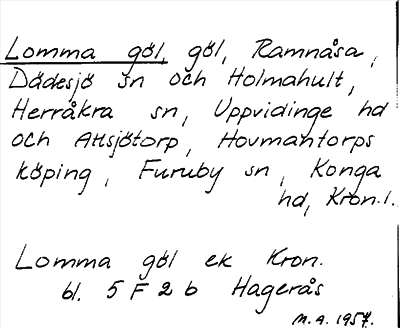 Lomma göl, göl, Ramnåsa,
Dädesjö sn och Holmahult,
Herråkra sn, Uppvidinge hd
och Attsjötorp, Hovmantorps
köping, Furuby sn, Konga
hd, Kron. l.
Lomma göl ek Kron.
bl. 5 F 2 b Hagerås
M. A. 1957.